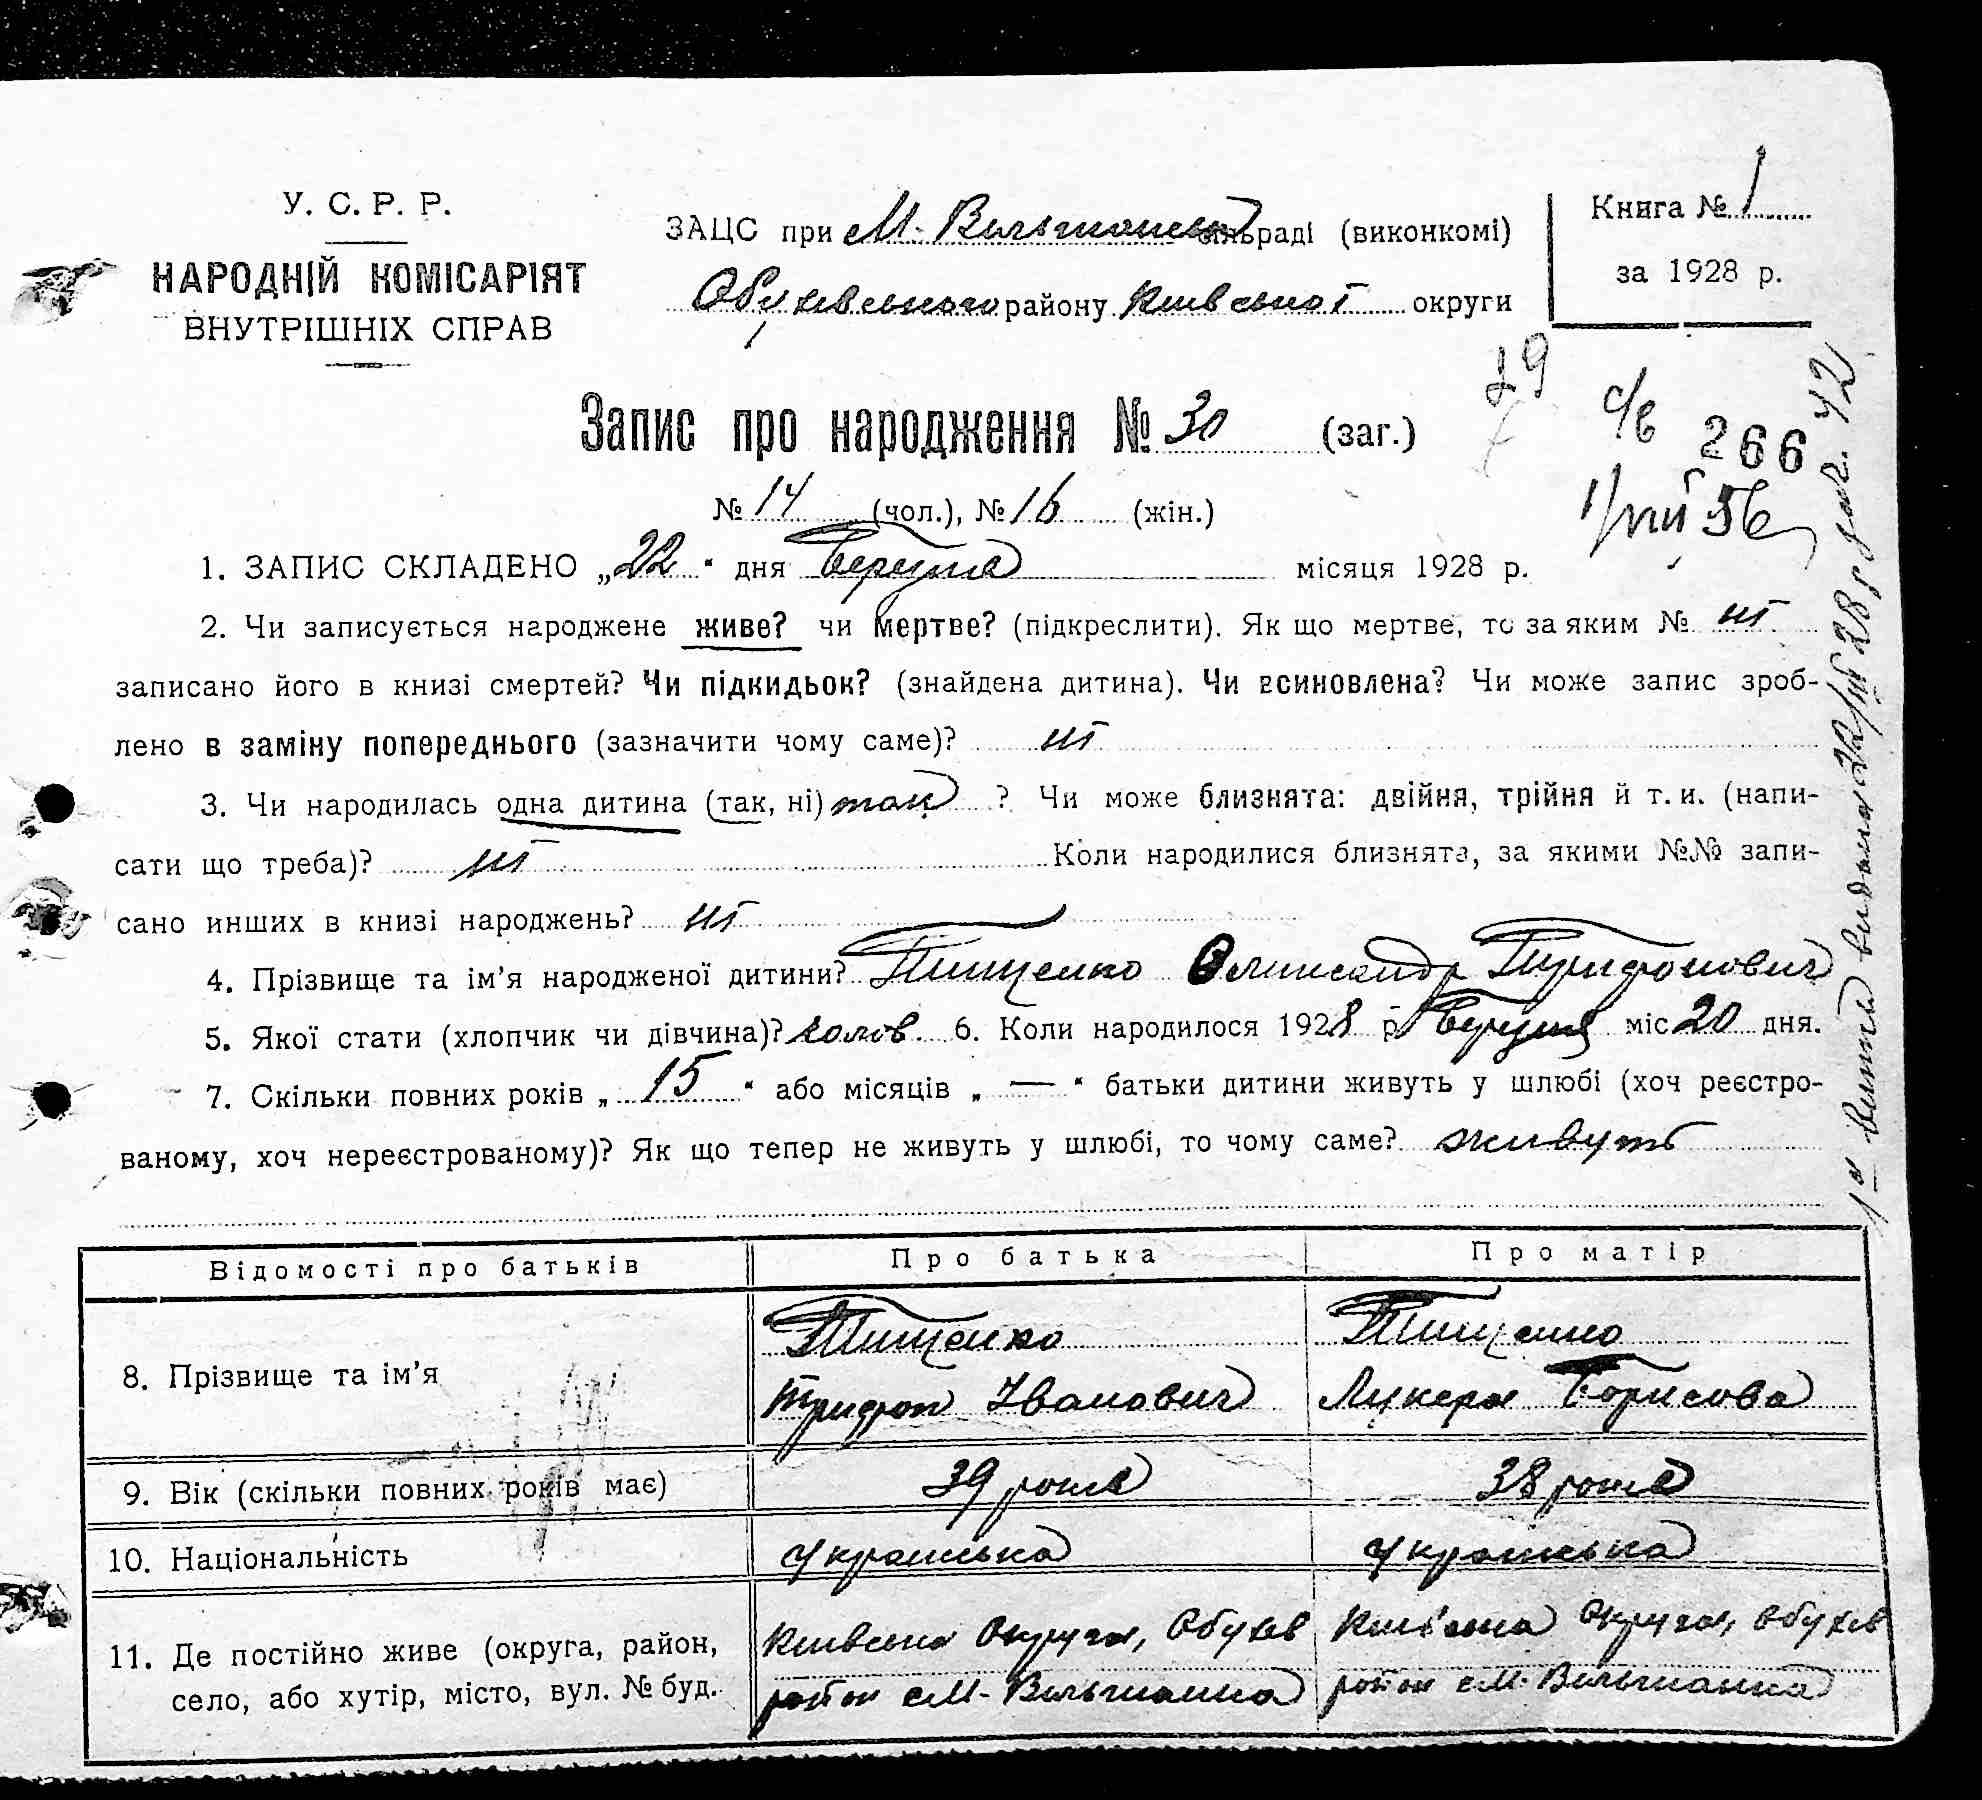 У. С. Р. Р.
НАРОДНІЙ КОМІСАРІЯТ
ВНУТРІШНІХ СПРАВ
ЗАЦС при М. Вільшанськ сільраді (виконкомі)
Обухівського району Київської округи
Книга № 1
за 1928 р.
Запис про народження № 30 (заг.)
266
№ 14 (чол.), № 16 (жін.)
1. ЗАПИС СКЛАДЕНО „22“ дня Березня місяця 1928 р.
2. Чи записується народжене живе? чи мертве? (підкреслити). Як що мертве, то за яким № ні
записано його в книзі смертей? Чи підкидьок? (знайдена дитина). Чи всиновлена? Чи може запис зроб-
лено в заміну попереднього (зазначити чому саме)? ні
3. Чи народилась одна дитина (так, ні) так ? Чи може близнята: двійня, трійня й т. и. (напи-
сати що треба)? ні Коли народилися близнята, за якими №№ запи-
сано инших в книзі народжень? ні
4. Прізвище та ім’я народженої дитини? Тищенко Олександр Трифонович
5. Якої стати (хлопчик чи дівчина)? чолов. 6. Коли народилося 1928 р Березня міс 20 дня.
7. Скільки повних років „ 15 “ або місяців „ — “ батьки дитини живуть у шлюбі (хоч реєстро-
ваному, хоч нереєстрованому)? Як що тепер не живуть у шлюбі, то чому саме? живуть
Відомості про батьків Про батька Про матір
8. Прізвище та ім’я Тищенко Трифон Іванович Тищенко Лукера Борисова
9. Вік (скільки повних років має) 39 років 38 років
10. Національність українська українська
11. Де постійно живе (округа, район,
село, або хутір, місто, вул. № буд.
Київська Округа, Обухів
район с М. Вільшанка
Київська Округа, Обухів
район с М. Вільшанка